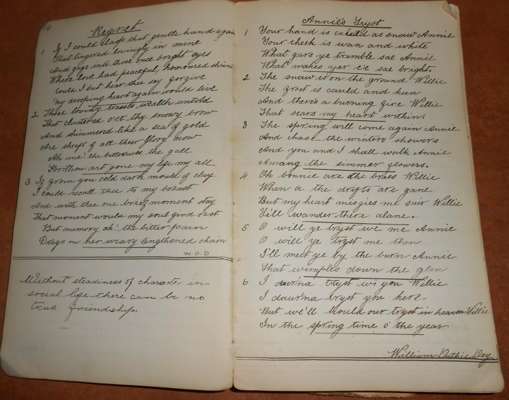 Regret
1 If I could clasp that gentle hand again
That lingered lovingly in mine
And gaze into that once bright eyes
Where love had peaceful honoured shrine
Could I but hear thee say forgive
My aching heart again would live
2 Those lovely tresses wealth untold
That clustered o'er thy snowy brow
And shimmered like a sea of gold
One shred of all their glory now
Ah me the bitterness the gall
For thou art gone my life my all
3 If from you cold dark mould of clay
I could recall thee to my breast
And with thee one brief moment stay
That moment would my soul good rest
But memory oh the bitter pain
Drags on her weary lengthened chain
W.O.D
Without steadiness of character in
social life there can be no
true friendship.
Annie's Tryst
1 Your hand is cauld as snaw Annie
Your cheek is wan and white
What gars ye tremble sae Annie
What makes yer e'e sae bright
2 The snaw is on the ground Willie
The frost is cauld and keen
And there's a burning fire Willie
That sears my heart within
3 The spring will come again Annie
And chase the winter showers
And you and I shall walk Annie
Amang the simmer flowers.
4 Oh bonnie are the braes Willie
When a' the drogts are gane
But my heart misgies me sair Willie
Ye'll wander there alane.
5 O will ye tryst wi me Annie
O will ye tryst me then
I'll meet ye by the burn Annie
That wimples down the glen
6 I daurna tryst wi you Willie
I daurna tryst you here
But we'll hould our tryst in heaven Willie
In the spring time o' the year
William